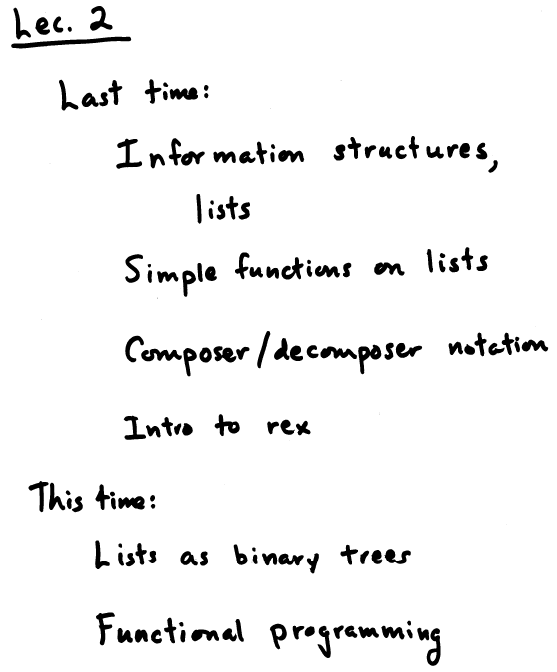 Lec. 2
Last time:
Information structures,
lists
Simple functions on lists
Composer/decomposer notation
Intro to rex
This time:
Lists as binary trees
Functional programming